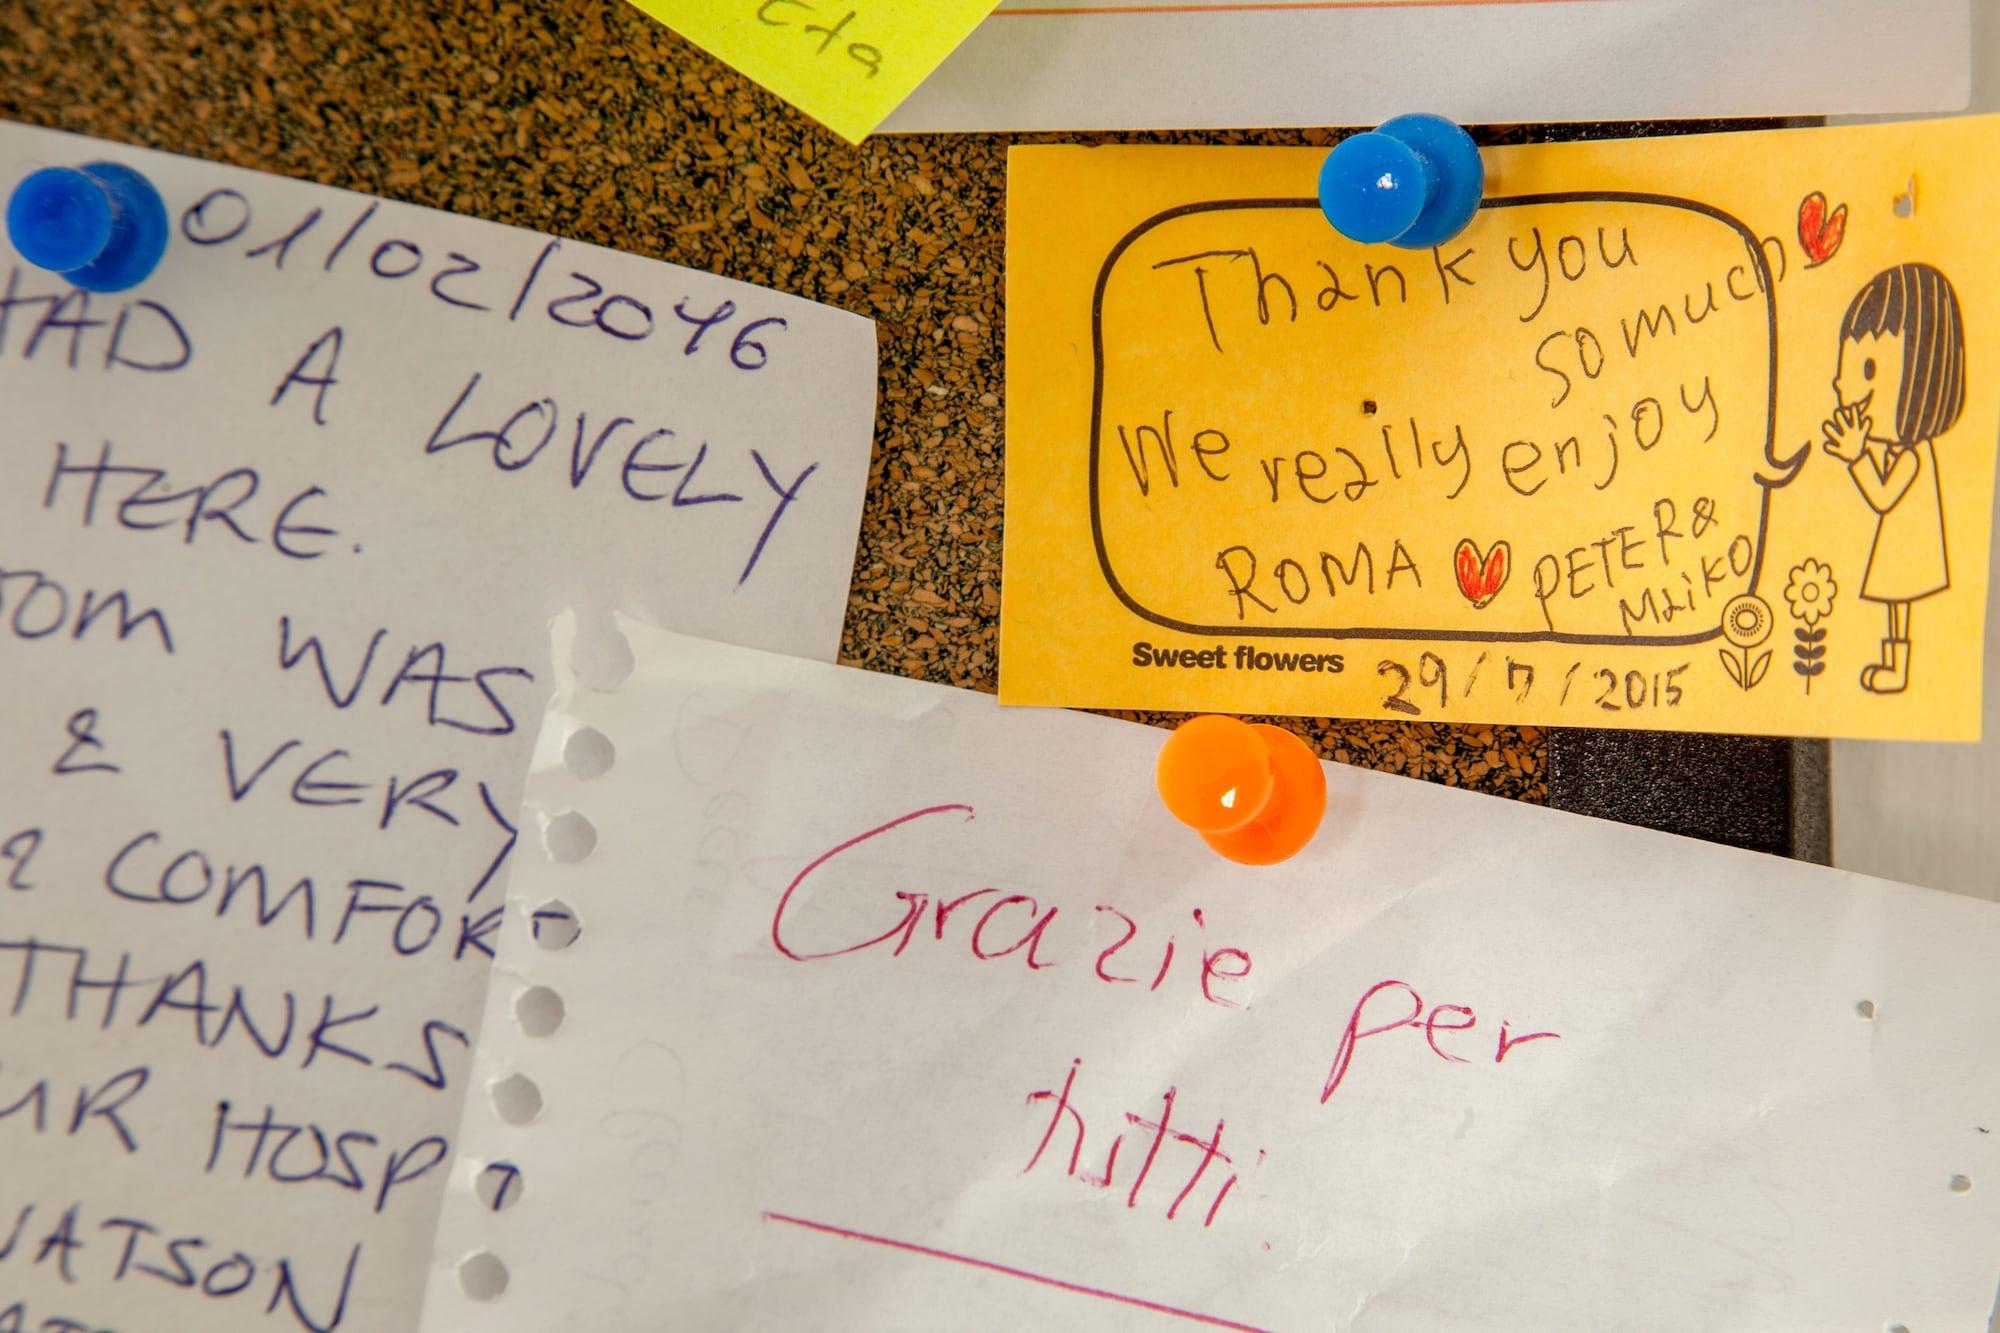 01/02/2046
HAD A LOVELY
HERE.
WAS
& VERY
& COMFORT
THANKS
UR HOSP
WATSON
Eta
Thank you
so much
We really enjoy
ROMA PETER &
Maiko
Sweet flowers
29/7/2015
Grazie per
tutti